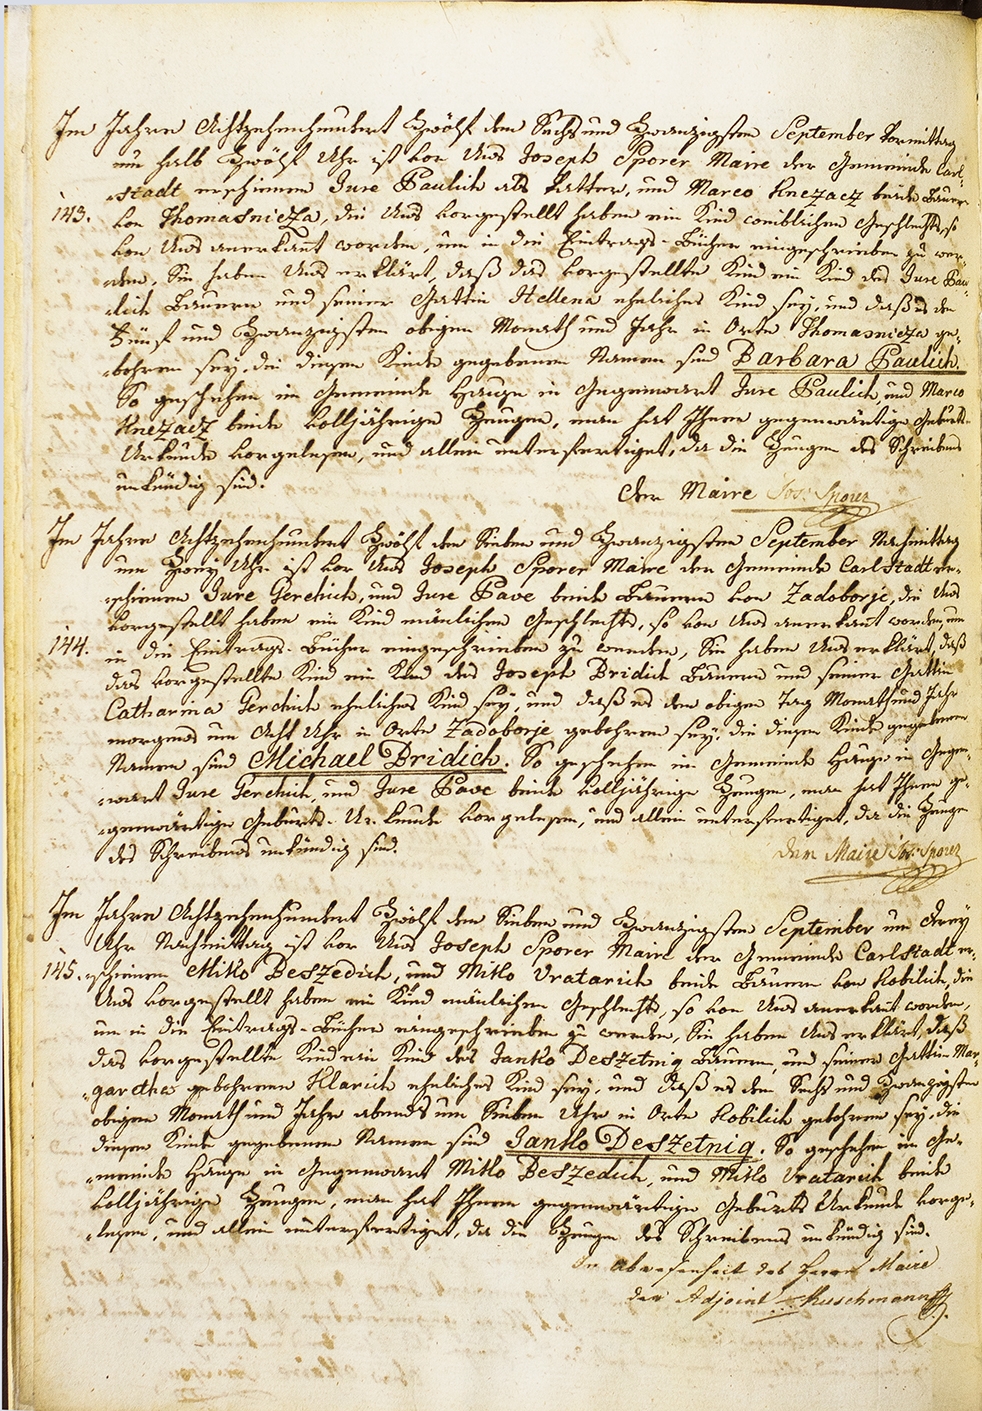 Im Jahre Achtzehenhundert Zwölf den Sechs und Zwanzigsten September Vormittag
um halb Zwölf Uhr ist vor Uns Joseph Sporer Maire der Gemeinde Carl-
stadt erschienen Jure Paulich als Vatter, und Marco Knezacz beide Bauern
143. von Thomasnicza, die Uns vorgestellt haben ein Kind weiblichen Geschlechts, so
von Uns anerkañt worden, um in die Eintrags-Bücher eingeschrieben zu wer-
den, Sie haben Uns erklärt, daß das vorgestellte Kind ein Kind des Jure Pau-
lich Bauern und seiner Gattin Hellena eheliches Kind sey, und daß es den
Fünf und Zwanzigsten obigen Monath und Jahr in Orte Thomasnicza ge-
bohren sey, die diesen Kinde gegebenen Namen sind Barbara Paulich.
So geschehen im Gemeinde Hause in Gegenwart Jure Paulich, und Marco
Knezacz beide volljährige Zeugen, man hat Ihnen gegenwärtige Geburts-
Urkunde vorgelesen, und allein unterfertiget, da die Zeugen des Schreibens
unkündig sind.
Der Maire Jos: Sporer
Im Jahre Achtzehenhundert Zwölf den Sieben und Zwanzigsten September Nachmittag
um Zwey Uhr ist vor Uns Joseph Sporer Maire der Gemeinde Carlstadt er-
schienen Jure Gerchich, und Jure Pave beide Bauern von Zadoborje, die Uns
vorgestellt haben ein Kind mänlichen Geschlechts, so von Uns anerkañt worden, um
144. in die Eintrags-Bücher eingeschrieben zu werden, Sie haben Uns erklärt, daß
das vorgestellte Kind ein Kind des Joseph Bridich Bauern und seiner Gattin
Catharina Gerchich eheliches Kind sey, und daß es den obigen Tag Monath und Jahr
morgends um Acht Uhr in Orte Zadoborje gebohren sey, die diesen Kinde gegebenen
Namen sind Michael Bridich. So geschehen im Gemeinde Hause in Gegen-
wart Jure Gerchich, und Jure Pave beide volljährige Zeugen, man hat Ihnen ge-
genwärtige Geburts-Urkunde vorgelesen, und allein unterfertiget, da die Zeugen
des Schreibens unkündig sind.
Der Maire Jos: Sporer
Im Jahre Achtzehenhundert Zwölf den Sieben und Zwanzigsten September um Drey
Uhr Nachmittag ist vor Uns Joseph Sporer Maire der Gemeinde Carlstadt er-
145. schienen Mitko Beszedich, und Mitko Vratarich beide Bauern von Kobilich, die
Uns vorgestellt haben ein Kind mänlichen Geschlechts, so von Uns anerkañt worden,
um in die Eintrags-Bücher eingeschrieben zu werden, Sie haben Uns erklärt, daß
das vorgestellte Kind ein Kind des Janko Deszetnig Bauern, und seiner Gattin Mar-
garetha gebohrene Klarich eheliches Kind sey, und daß es den Sechs und Zwanzigsten
obigen Monath und Jahr abends um Sieben Uhr in Orte Kobilich gebohren sey, die
diesen Kinde gegebenen Namen sind Janko Deszetnig. So geschehen im Ge-
meinde Hause in Gegenwart Mitko Beszedich, und Mitko Vratarich beide
volljährige Zeugen, man hat Ihnen gegenwärtige Geburts Urkunde vorge-
lesen, und allein unterfertiget, da die Zeugen des Schreibens unkündig sind.
In Abwesenheit des Herrn Maire
der Adjoint Kuschmann